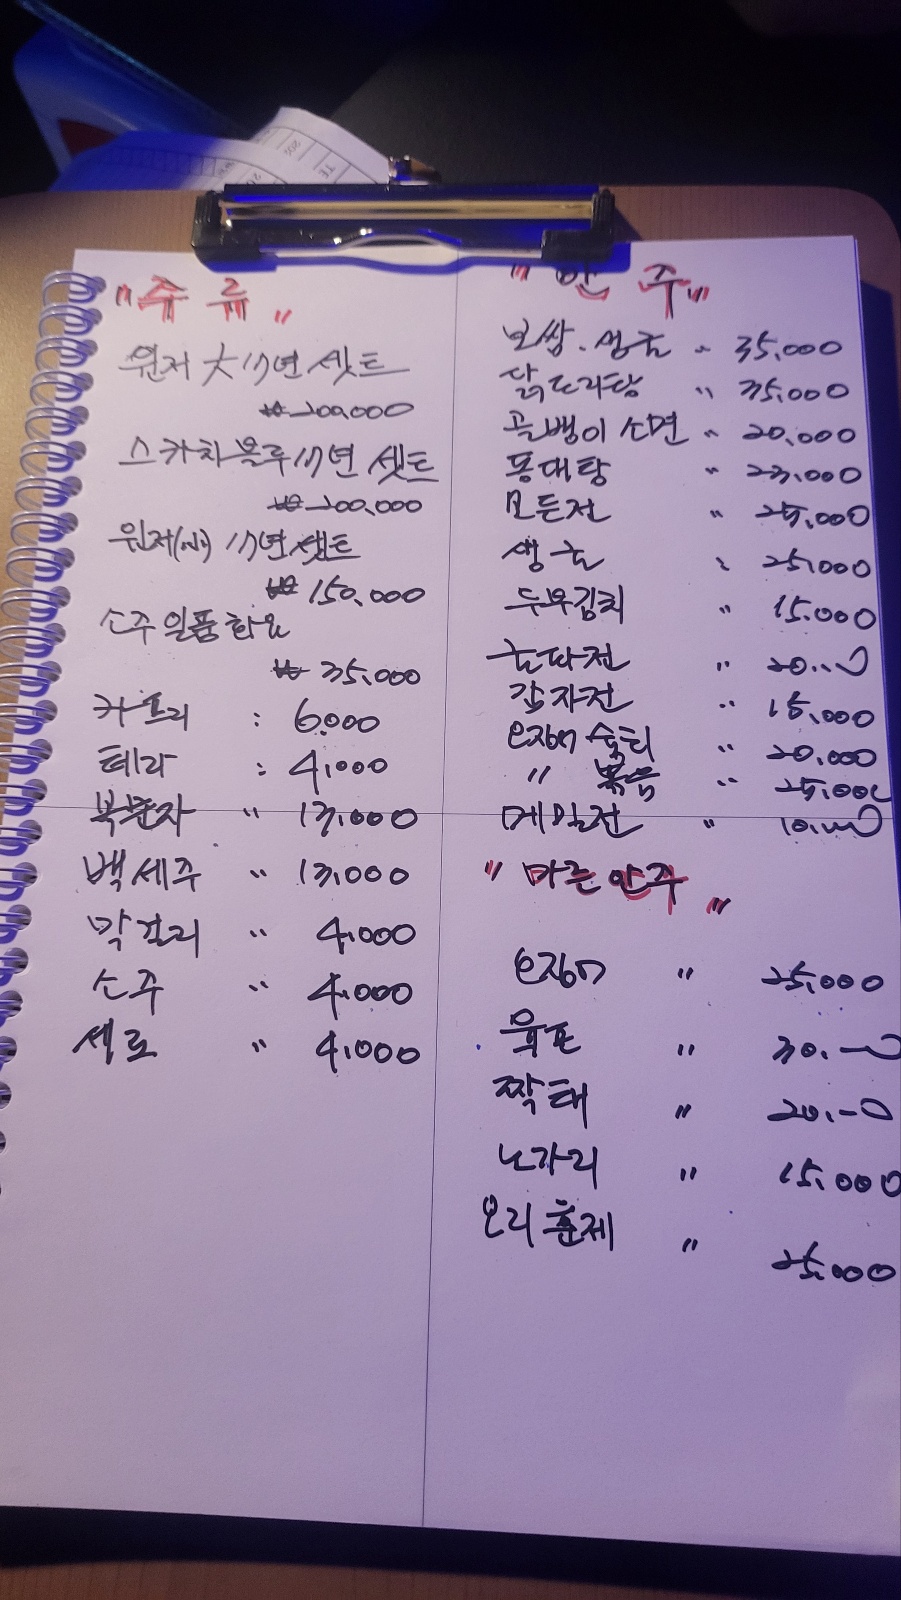 "주 류"
윈저 大 17년 셋트
₩ 200,000
스카치블루 17년 셋트
₩ 200,000
윈저(小) 17년 셋트
₩ 150,000
소주 일품 화요
₩ 35,000
카프리 : 6,000
테라 : 4,000
복분자 " 13,000
백세주 " 13,000
막걸리 " 4,000
소주 " 4,000
새로 " 4,000
"안 주"
보쌈. " 35,000
닭도리탕 " 35,000
골뱅이 소면 " 20,000
동태탕 " 23,000
모듬전 " 25,000
: 25,000
두부김치 " 15,000
" 20.000
감자전 " 15,000
오징어 숙회 " 20,000
" 볶음 " 25,000
메밀전 " 10.000
"마른안주"
오징어 " 25,000
육포 " 30.000
짝태 " 20.000
노가리 " 15,000
오리훈제 " 25,000